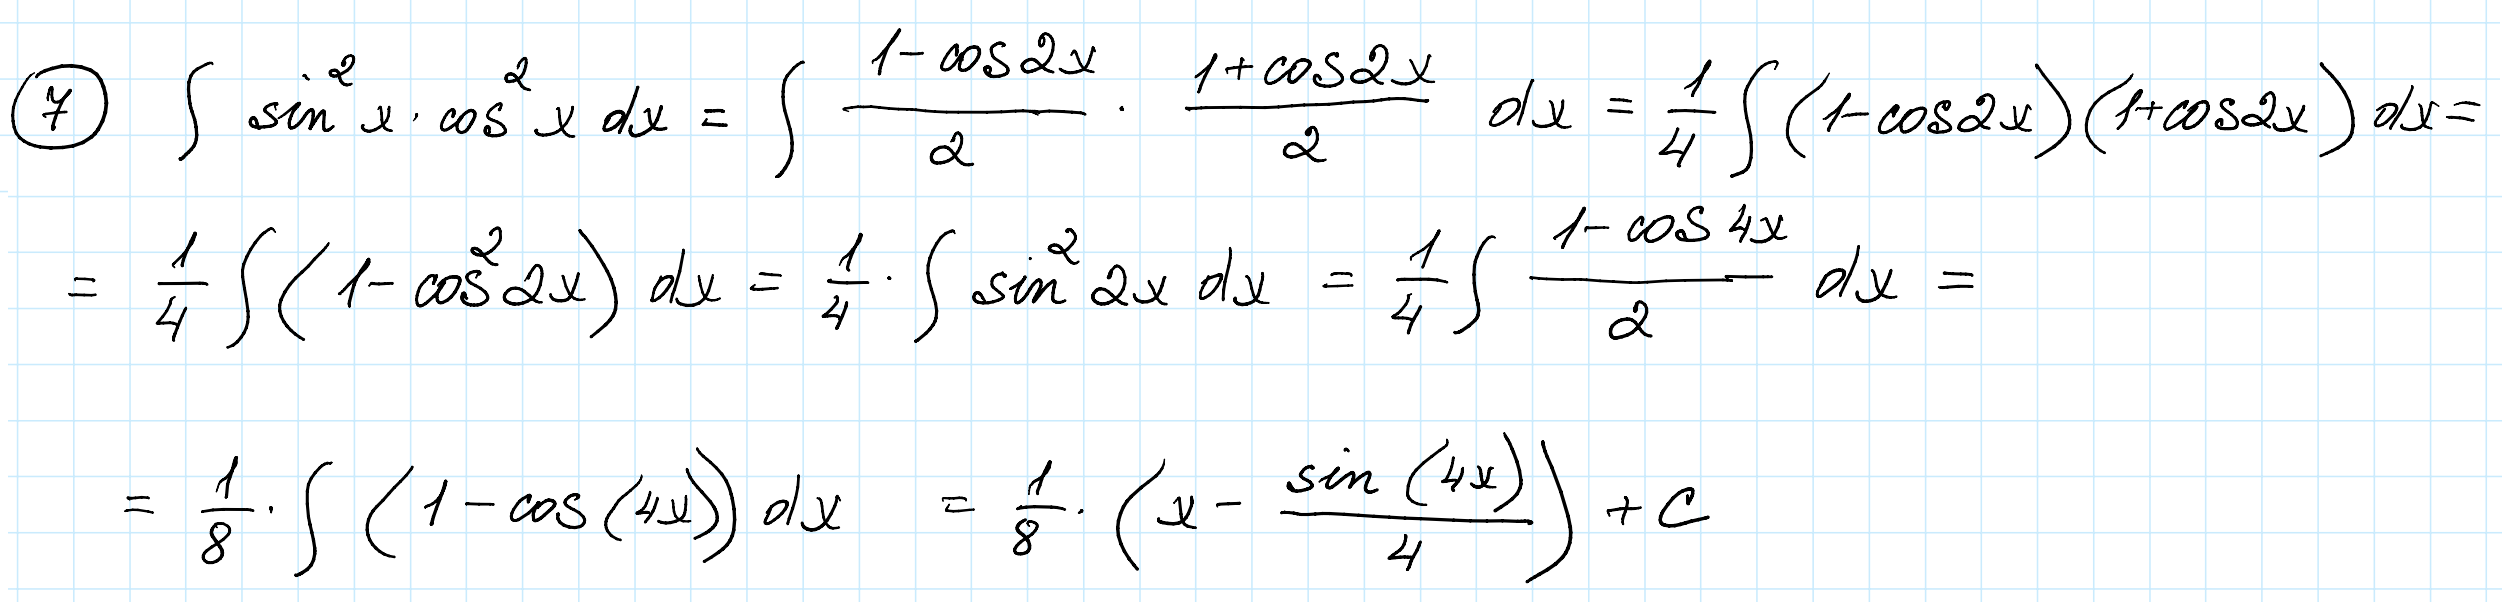 7 ∫ sin² x · cos² x dx = ∫ (1 - cos 2x)/2 · (1 + cos 2x)/2 dx = 1/4 ∫ (1 - cos 2x)(1 + cos 2x) dx =
= 1/4 ∫ (1 - cos² 2x) dx = 1/4 · ∫ sin² 2x dx = 1/4 ∫ (1 - cos 4x)/2 dx =
= 1/8 · ∫ (1 - cos (4x)) dx = 1/8 · (x - sin (4x)/4) + C